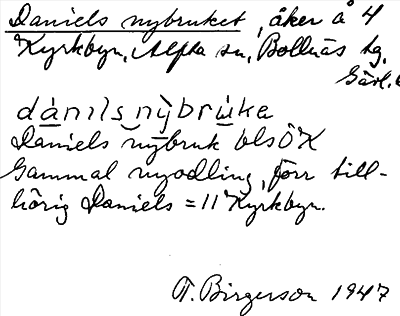 Daniels nybruket, åker å 4
Kyrkbyn, Alfta sn, Bollnäs tg,
Gävl.
dànilsnỳbrùka
Daniels nybruk bls Ö K
Gammal nyodling, förr till-
hörig Daniels = 11 Kyrkbyn.
T. Birgerson 1947